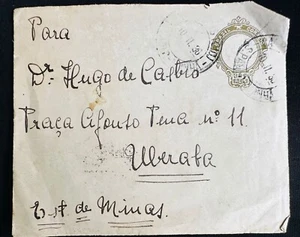 Para
Dr. Hugo de Castro
Praça Afonso Pena nº 11
Uberaba
Est. de Minas.